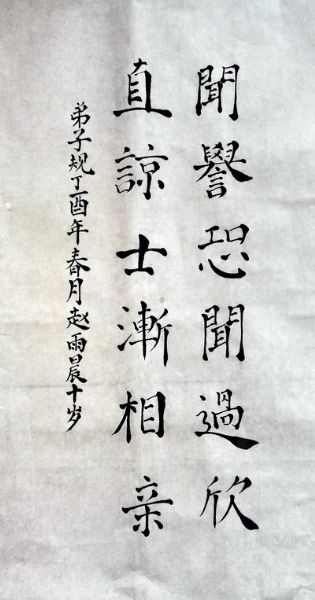 聞譽恐聞過欣
直諒士漸相亲
弟子规丁酉年春月赵雨晨十岁